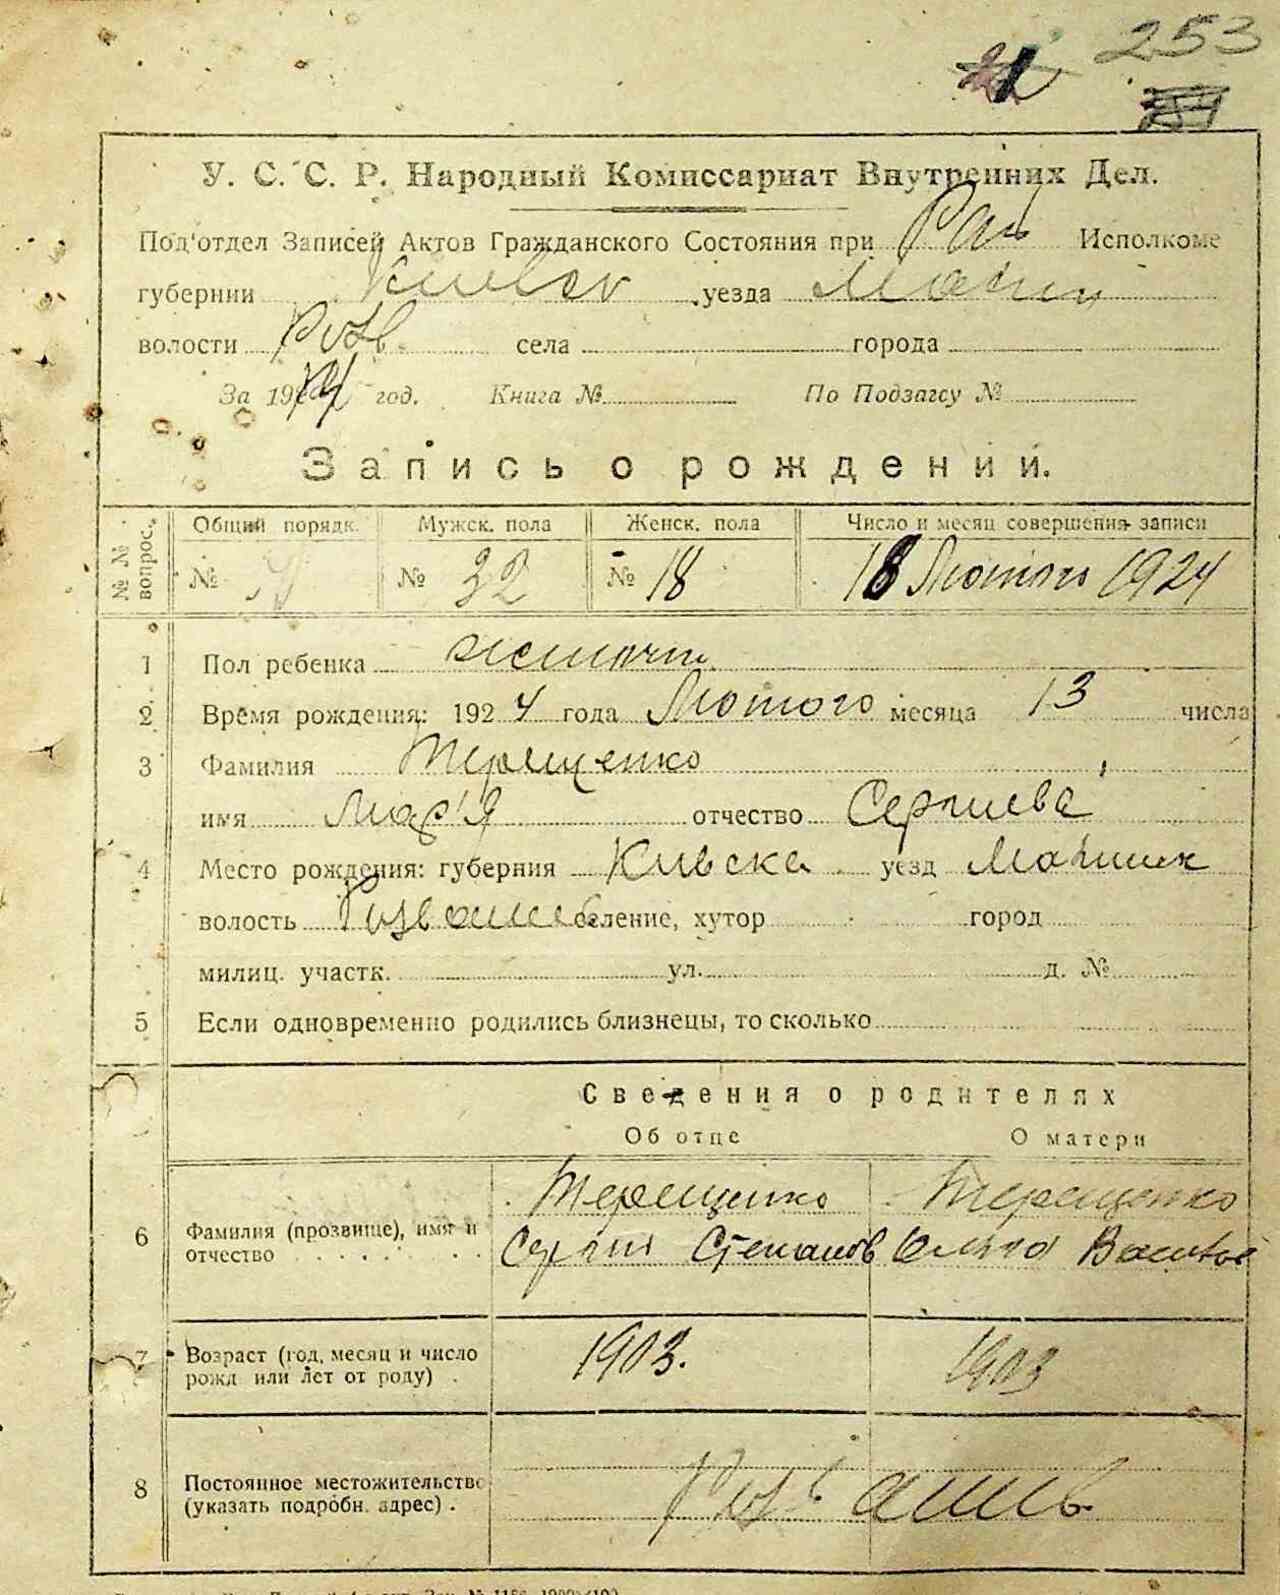 253
У. С. С. Р. Народный Комиссариат Внутренних Дел.
Под'отдел Записей Актов Гражданского Состояния при Рай Исполкоме
губернии Киевск уезда
волости Розв. села города
За 1924 год. Книга № По Подзагсу №
Запись о рождении.
№ № вопрос. Общий порядк. Мужск. пола Женск. пола Число и месяц совершения записи
№ № 32 № 18 18 Лютого 1924
1 Пол ребенка
2 Время рождения: 1924 года Лютого месяца 13 числа
3 Фамилия Терещенко
имя Мар'я отчество Сергиева
4 Место рождения: губерния Киевска уезд
волость Розважев селение, хутор город
милиц. участк. ул. д. №
5 Если одновременно родились близнецы, то сколько
Сведения о родителях
Об отце О матери
Терещенко Терещенко
6 Фамилия (прозвище), имя и
отчество Степанов
7 Возраст (год, месяц и число
рожд или лет от роду) . 1903. 1903
8 Постоянное местожительство
(указать подробн. адрес) .